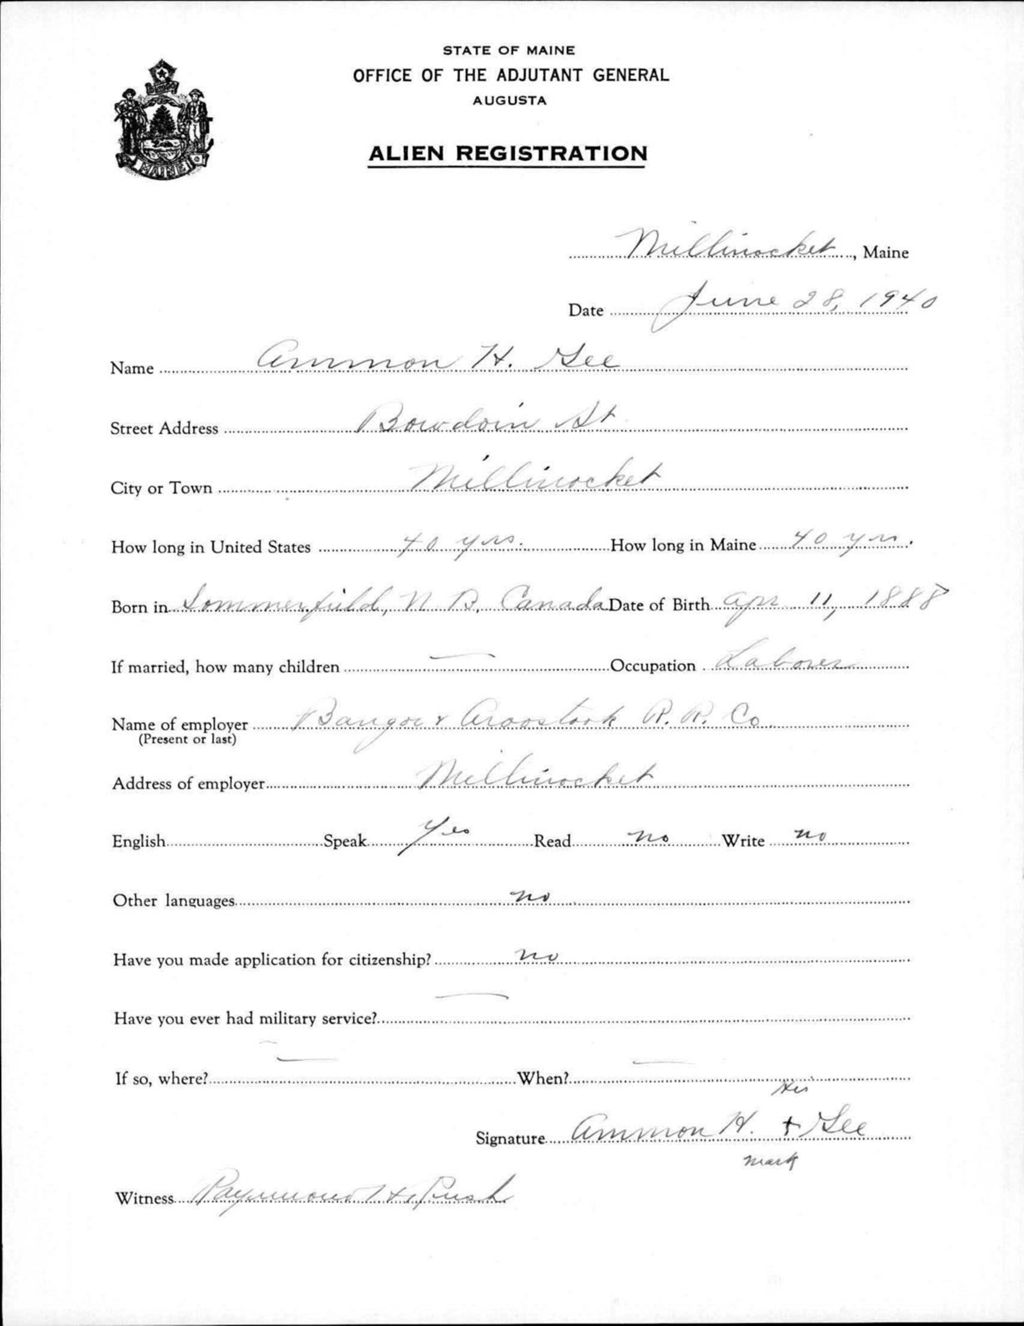 STATE OF MAINE
OFFICE OF THE ADJUTANT GENERAL
AUGUSTA
ALIEN REGISTRATION
MAINE
Millinocket, Maine
Date June 28, 1940
Name Ammon H. Gee
Street Address Bowdoin St
City or Town Millinocket
How long in United States 40 yrs. How long in Maine 40 yrs.
Born in Sommerfield, N B, Canada Date of Birth Apr 11, 1888
If married, how many children — Occupation Laborer
Name of employer Bangor & Aroostook R. R. Co
(Present or last)
Address of employer Millinocket
English Speak Yes Read no Write no
Other languages no
Have you made application for citizenship? no
Have you ever had military service? —
If so, where? — When? —
His
Signature Ammon H. + Gee
mark
Witness Raymond H. Rush